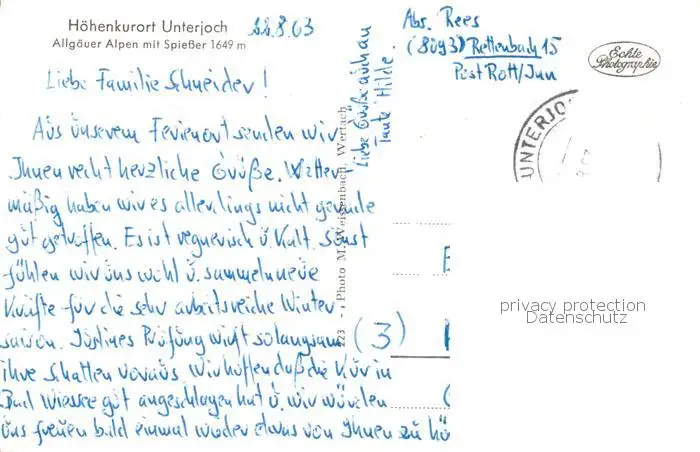 Höhenkurort Unterjoch
Allgäuer Alpen mit Spießer 1649 m
22.8.63
Liebe Familie Schneider!
Aus unserem Ferienort senden wir
Ihnen recht herzliche Grüße. Wetter-
mäßig haben wir es allerdings nicht gerade
gut getroffen. Es ist regnerisch u. kalt. Sonst
fühlen wir uns wohl u. sammeln neue
Kräfte für die sehr arbeitsreiche Winter
saison. Prüfung wirft so langsam
ihre Schatten voraus. Wir hoffen daß die Kur in
Bad Wiessee gut angeschlagen hat u. wir würden
uns freuen bald einmal wieder etwas von Ihnen zu hö
Liebe Grüße auch an
Tante Hilde.
223 - Photo M. Weissenbach, Wertach
Abs. Rees
(8093) Rettenbach 15
Post Rott/Inn
Echte
Photographie
UNTERJO
(3)
privacy protection
Datenschutz